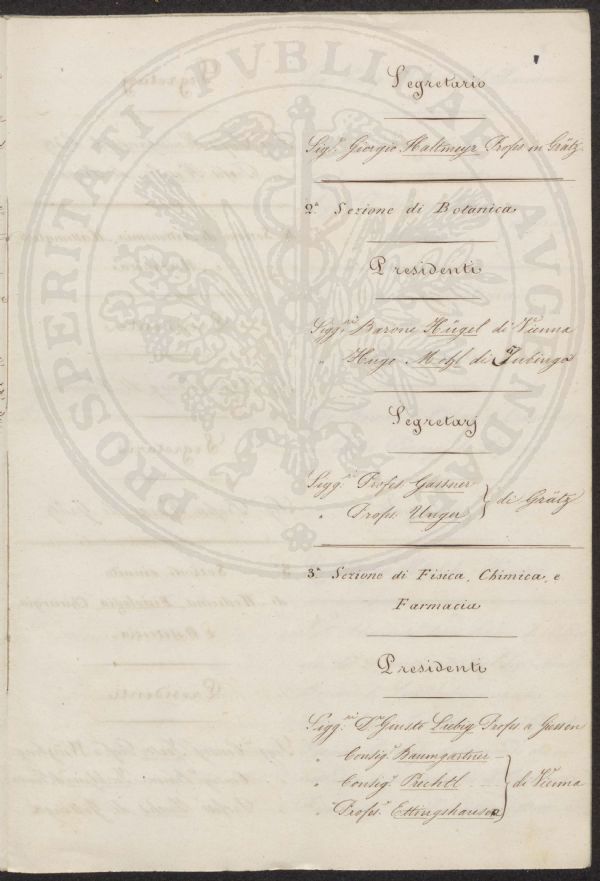 Segretario
Sig.r Giorgio Haltmeyr Profes in Grätz
2.a Sezione di Botanica
Presidenti
Sigg.ri Barone Hügel di Vienna
" Hugo Mohl di Tubinga
Segretarj
Sigg.ri Profes. Gassner
" Profes. Unger } di Grätz
3.a Sezione di Fisica, Chimica, e
Farmacia
Presidenti
Sigg.ri Dr Giusto Liebig Profes a Giessen
" Consig.r Baumgartner
" Consig.r Prechtl } di Vienna
" Profes. Ettingshausen
PROSPERITATI PVBLICAE AVGENDAE